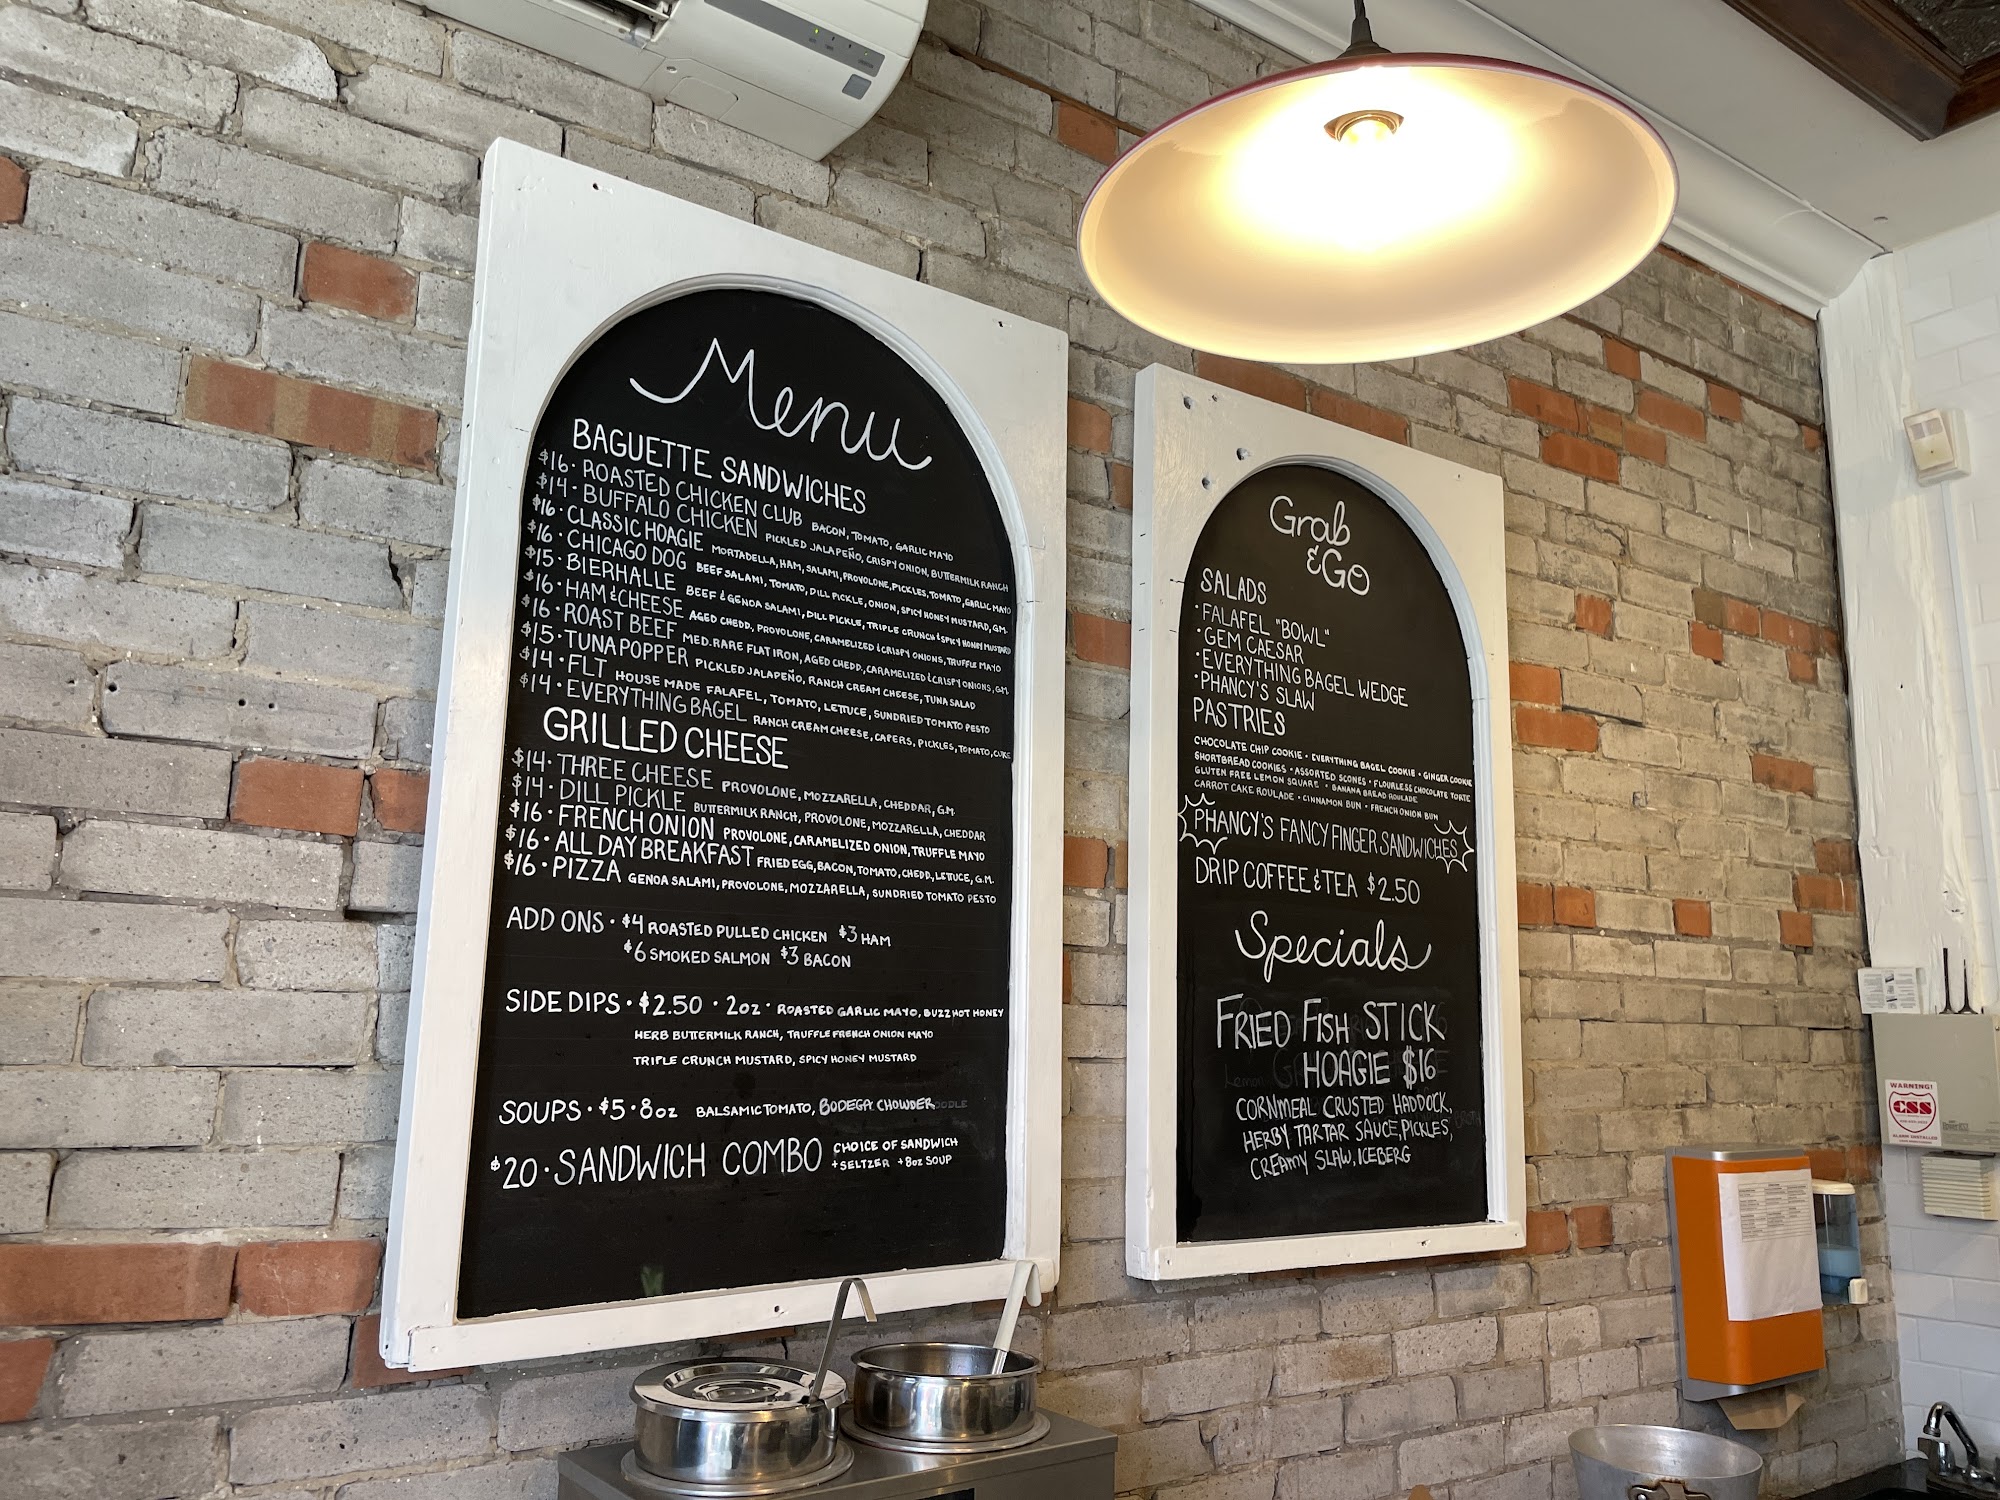 Menu
BAGUETTE SANDWICHES
$16 · ROASTED CHICKEN CLUB BACON, TOMATO, GARLIC MAYO
$14 · BUFFALO CHICKEN PICKLED JALAPEÑO, CRISPY ONION, BUTTERMILK RANCH
$16 · CLASSIC HOAGIE MORTADELLA, HAM, SALAMI, PROVOLONE, PICKLES, TOMATO, GARLIC MAYO
$16 · CHICAGO DOG BEEF SALAMI, TOMATO, DILL PICKLE, ONION, SPICY HONEY MUSTARD, G.M.
$15 · BIERHALLE BEEF & GENOA SALAMI, DILL PICKLE, TRIPLE CRUNCH & SPICY HONEY MUSTARD
$16 · HAM & CHEESE AGED CHEDD, PROVOLONE, CARAMELIZED & CRISPY ONIONS, TRUFFLE MAYO
$16 · ROAST BEEF MED. RARE FLAT IRON, AGED CHEDD, CARAMELIZED & CRISPY ONIONS, G.M.
$15 · TUNA POPPER PICKLED JALAPEÑO, RANCH CREAM CHEESE, TUNA SALAD
$14 · FLT HOUSE MADE FALAFEL, TOMATO, LETTUCE, SUNDRIED TOMATO PESTO
$14 · EVERYTHING BAGEL RANCH CREAM CHEESE, CAPERS, PICKLES, TOMATO, CUKE
GRILLED CHEESE
$14 · THREE CHEESE PROVOLONE, MOZZARELLA, CHEDDAR, G.M.
$14 · DILL PICKLE BUTTERMILK RANCH, PROVOLONE, MOZZARELLA, CHEDDAR
$16 · FRENCH ONION PROVOLONE, CARAMELIZED ONION, TRUFFLE MAYO
$16 · ALL DAY BREAKFAST FRIED EGG, BACON, TOMATO, CHEDD, LETTUCE, G.M.
$16 · PIZZA GENOA SALAMI, PROVOLONE, MOZZARELLA, SUNDRIED TOMATO PESTO
ADD ONS · $4 ROASTED PULLED CHICKEN $3 HAM
$6 SMOKED SALMON $3 BACON
SIDE DIPS · $2.50 · 2oz · ROASTED GARLIC MAYO, BUZZ HOT HONEY
HERB BUTTERMILK RANCH, TRUFFLE FRENCH ONION MAYO
TRIPLE CRUNCH MUSTARD, SPICY HONEY MUSTARD
SOUPS · $5 · 8oz BALSAMIC TOMATO, BODEGA CHOWDER
$20 · SANDWICH COMBO CHOICE OF SANDWICH
+ SELTZER + 8oz SOUP
Grab
& GO
SALADS
· FALAFEL "BOWL"
· GEM CAESAR
· EVERYTHING BAGEL WEDGE
· PHANCY'S SLAW
PASTRIES
CHOCOLATE CHIP COOKIE · EVERYTHING BAGEL COOKIE · GINGER COOKIE
SHORTBREAD COOKIES · ASSORTED SCONES · FLOURLESS CHOCOLATE TORTE
GLUTEN FREE LEMON SQUARE · BANANA BREAD ROULADE
CARROT CAKE ROULADE · CINNAMON BUN · FRENCH ONION BUN
PHANCY'S FANCY FINGER SANDWICHES
DRIP COFFEE & TEA $2.50
Specials
FRIED FISH STICK
HOAGIE $16
CORNMEAL CRUSTED HADDOCK,
HERBY TARTAR SAUCE, PICKLES,
CREAMY SLAW, ICEBERG
WARNING!
CSS
ALARM INSTALLED